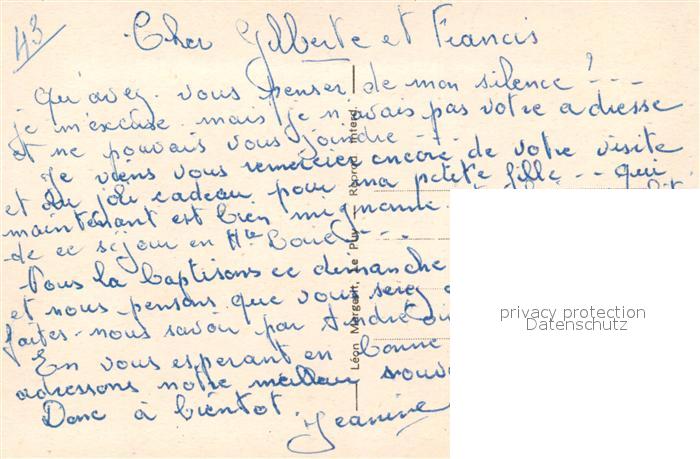 43
Cher Gilberte et Francis
Qu'avez vous penser de mon silence? ---
je m'excuse mais je n'avais pas votre adresse
et ne pouvais vous joindre --
Je viens vous remercier encore de votre visite
et du joli cadeau pour ma petite fille -- qui
maintenant est bien mignonne.
de ce séjour en Hte Loire ---
Nous la baptisons ce dimanche
et nous pensons que vous serez
faites-nous savoir par André
En vous esperant en bonne
adressons notre meilleur
Donc à bientot.
Jeanine
Léon Margerit, Le Puy — Reprod. Interd.
privacy protection
Datenschutz